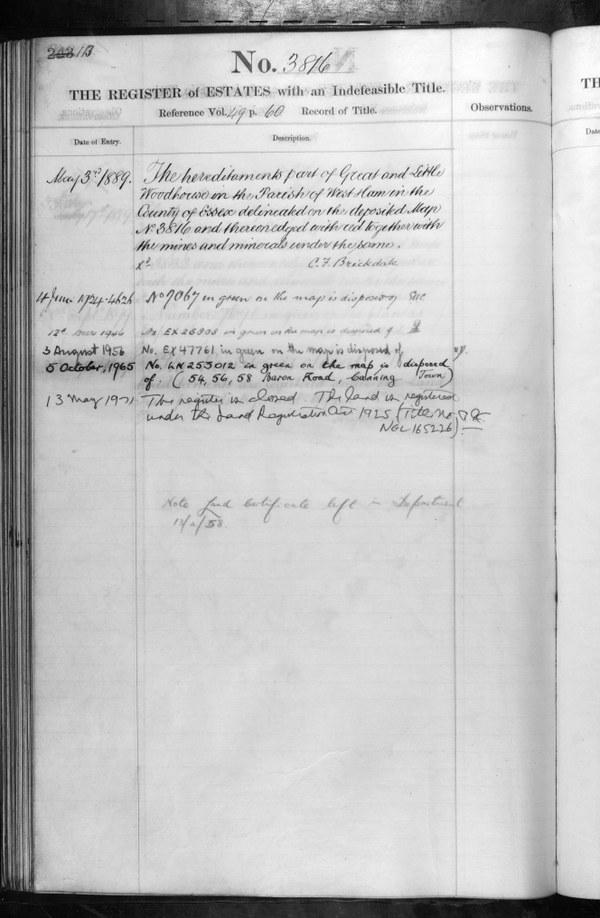 113
No. 3816
THE REGISTER of ESTATES with an Indefeasible Title.
Reference Vol. 49 p. 60 Record of Title.
Observations.
Date of Entry.
Description.
May 3rd 1889.
The hereditaments part of Great and Little
Woodhouse in the Parish of West Ham in the
County of Essex delineated on the deposited Map
No 3816 and thereon edged with red together with
the mines and minerals under the same.
C. F. Brickdale
4 June 1924
No 9067 in green on the map is disposed of
No. EX in green on the map is disposed of
3 August 1956
No. EX 47761 in green on the map is disposed of
5 October, 1965
No. LN 253012 in green on the map is disposed
of. (54, 56, 58 Baron Road, Canning Town)
13 May 1971
The register is closed The land is registered
under the Land Registration Act 1925 (Title No.
NGL 165226)
Note Land Certificate left in Department
TH
Date